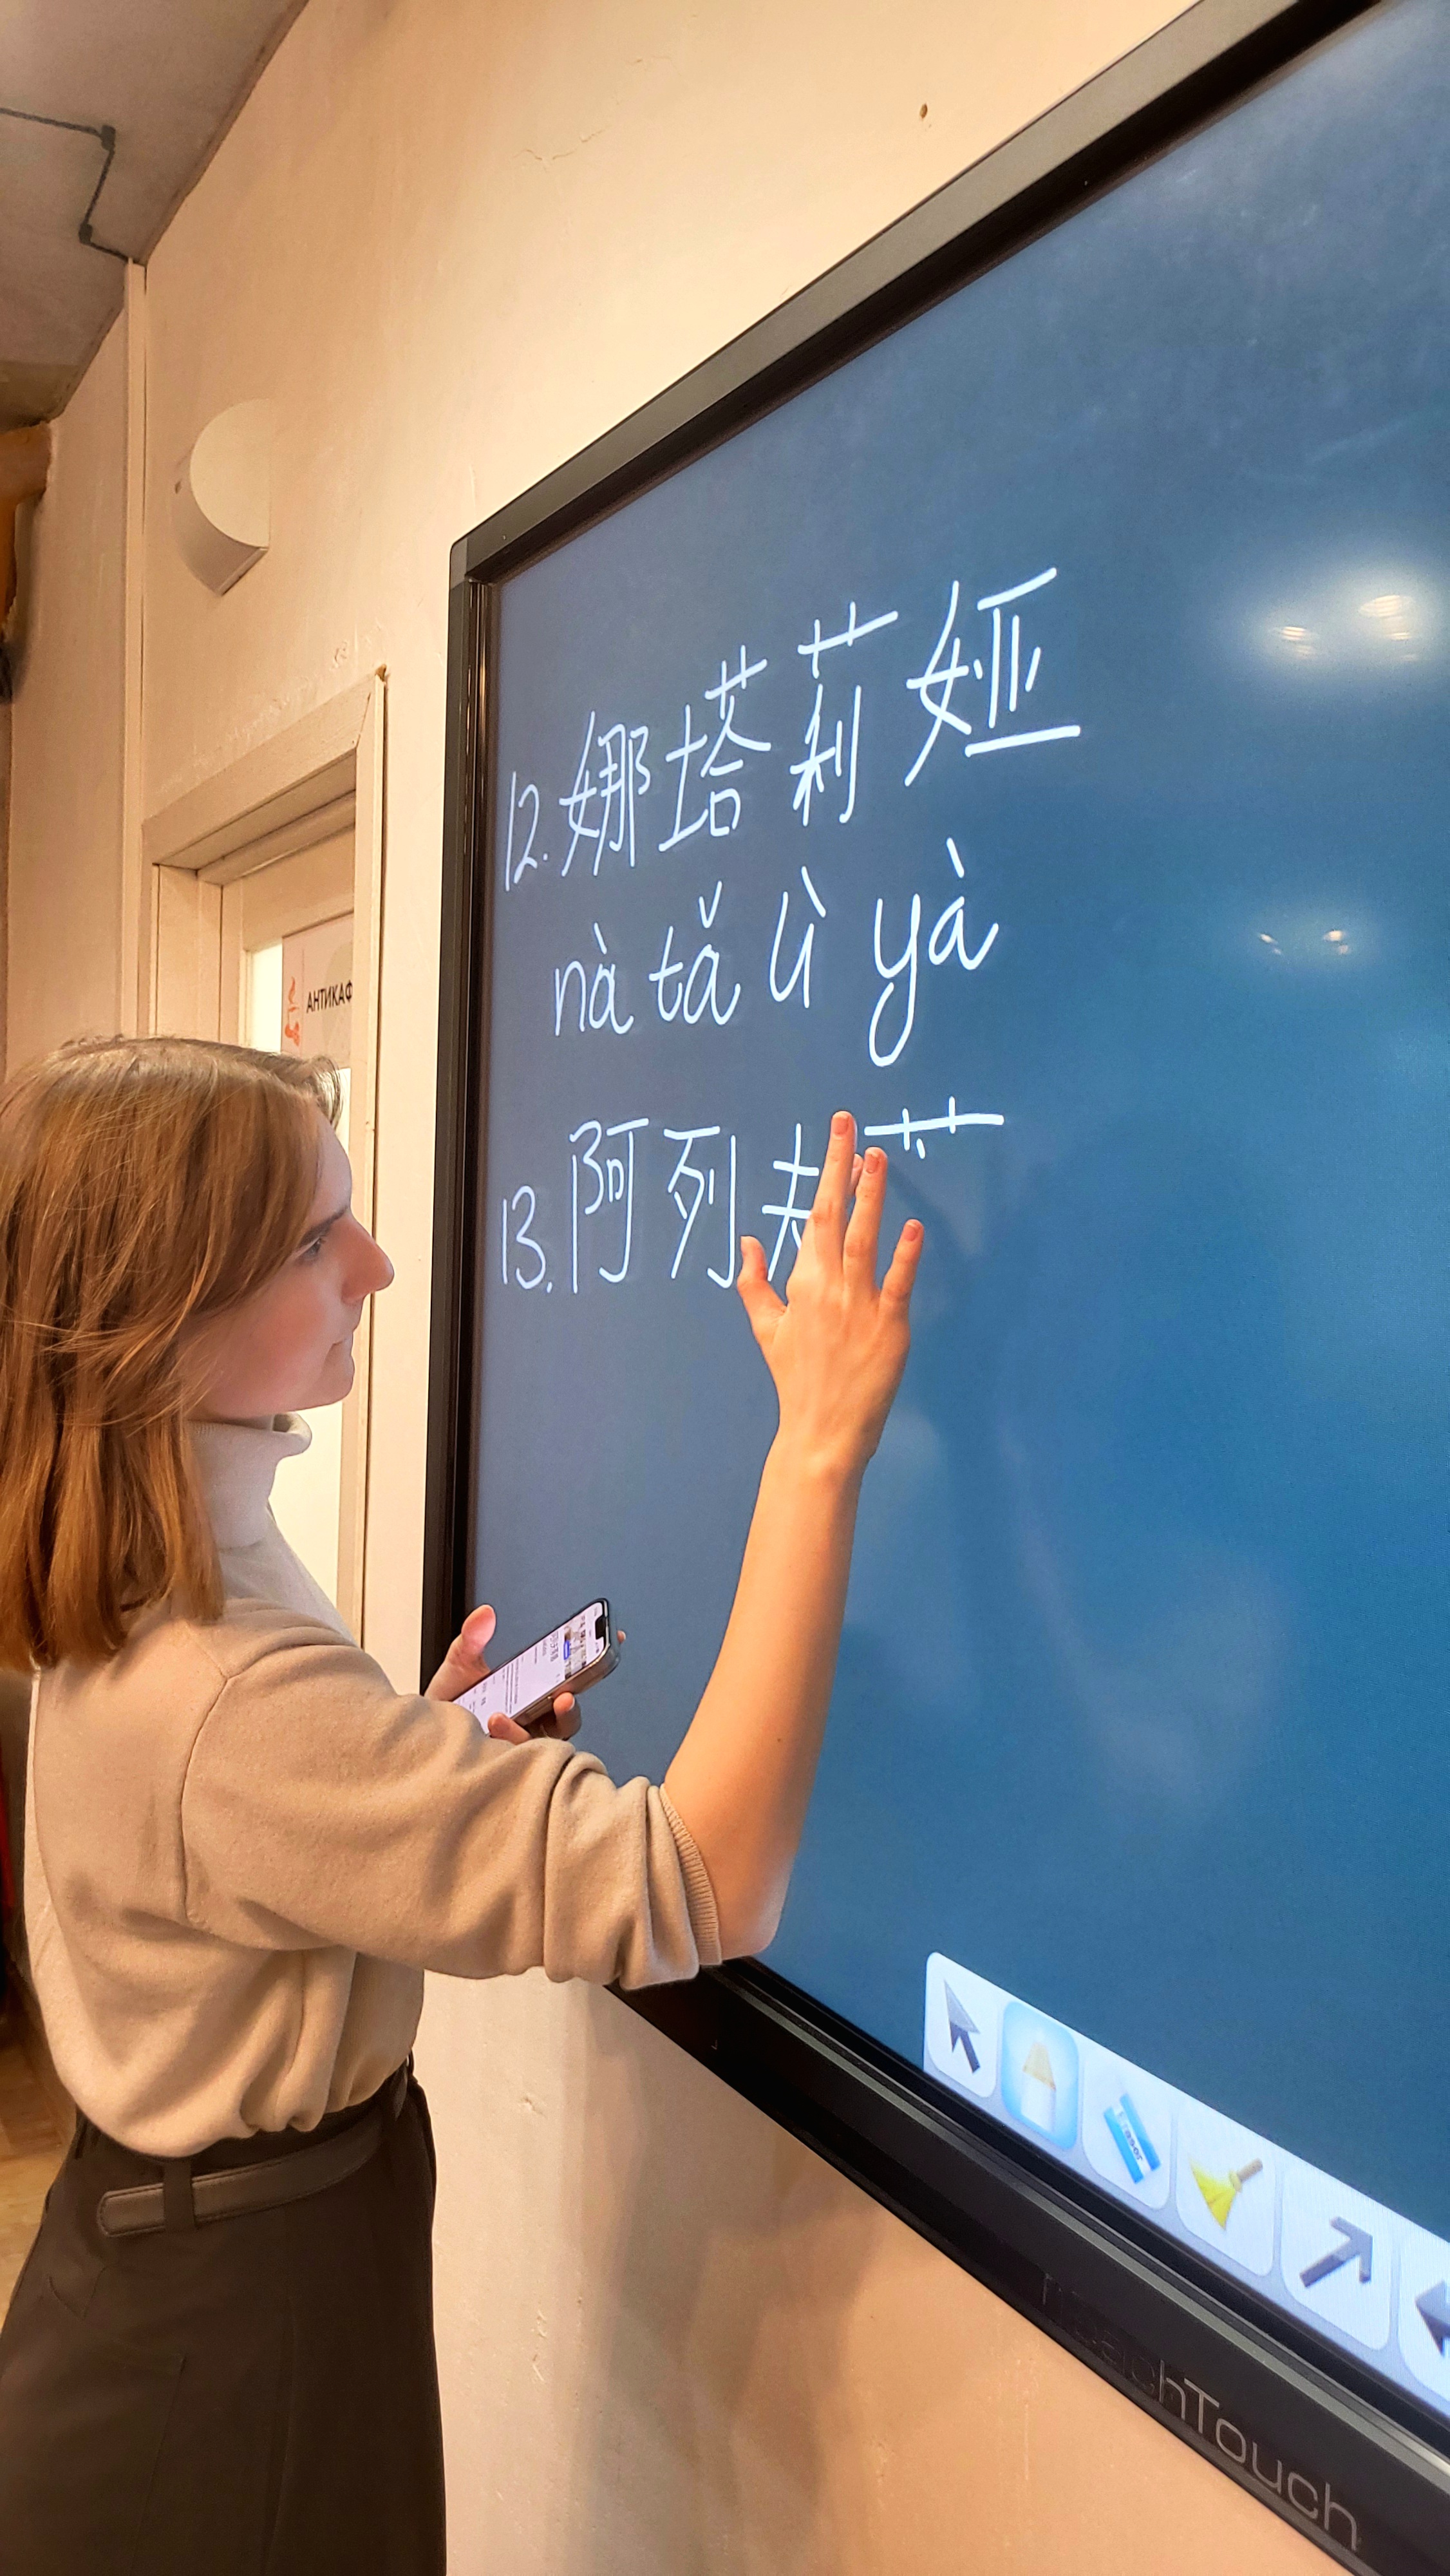 12. 娜塔莉娅
nà tǎ lì yà
13. 阿列夫
АНТИКАФ
Eraser
TeachTouch